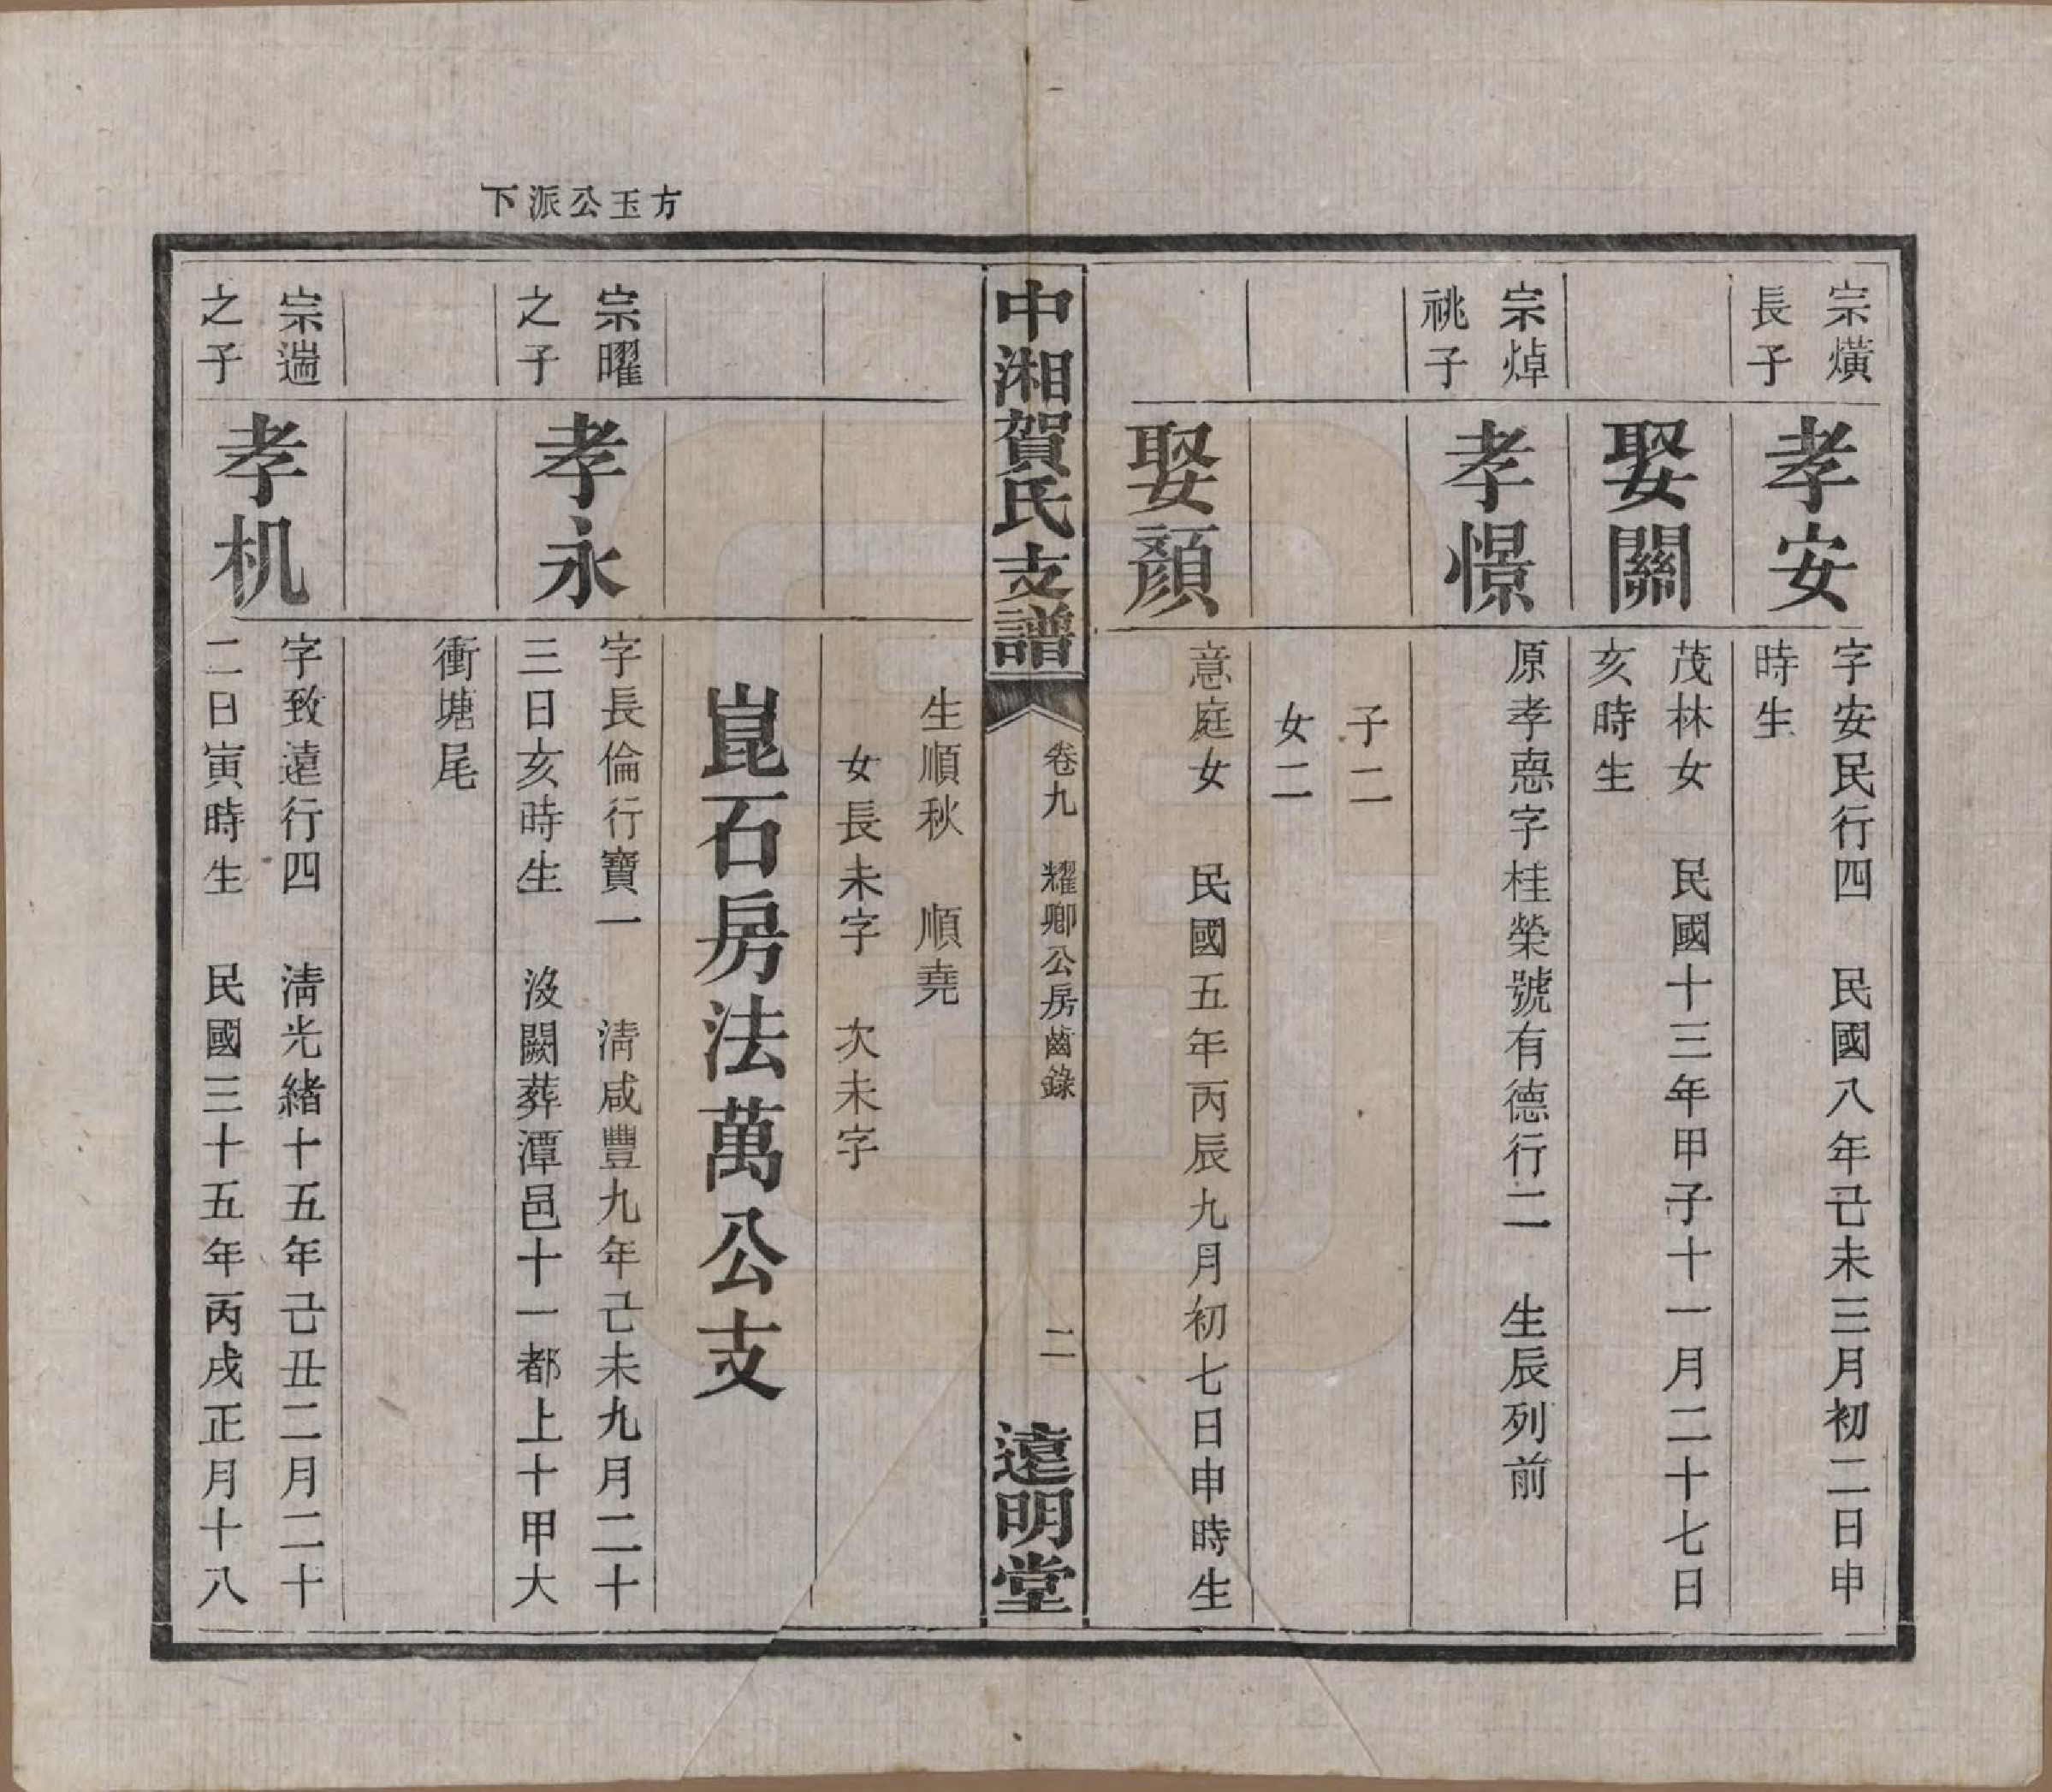 宗熿
長子
孝安
字安民行四　民國八年己未三月初二日申
時生
娶關
茂林女　民國十三年甲子十一月二十七日
亥時生
宗焯
祧子
孝憬
原孝惪字桂榮號有德行二　生辰列前
子二
女二
娶顏
意庭女　民國五年丙辰九月初七日申時生
中湘賀氏支譜
卷九　耀卿公房齒錄
二
遠明堂
生順秋　順堯
女長未字　次未字
崑石房法萬公支
方玉公派下
宗曜
之子
孝永
字長倫行寶一　清咸豐九年己未九月二十
三日亥時生　沒闕葬潭邑十一都上十甲大
衝塘尾
宗遄
之子
孝机
字致遠行四　清光緒十五年己丑二月二十
二日寅時生　民國三十五年丙戌正月十八